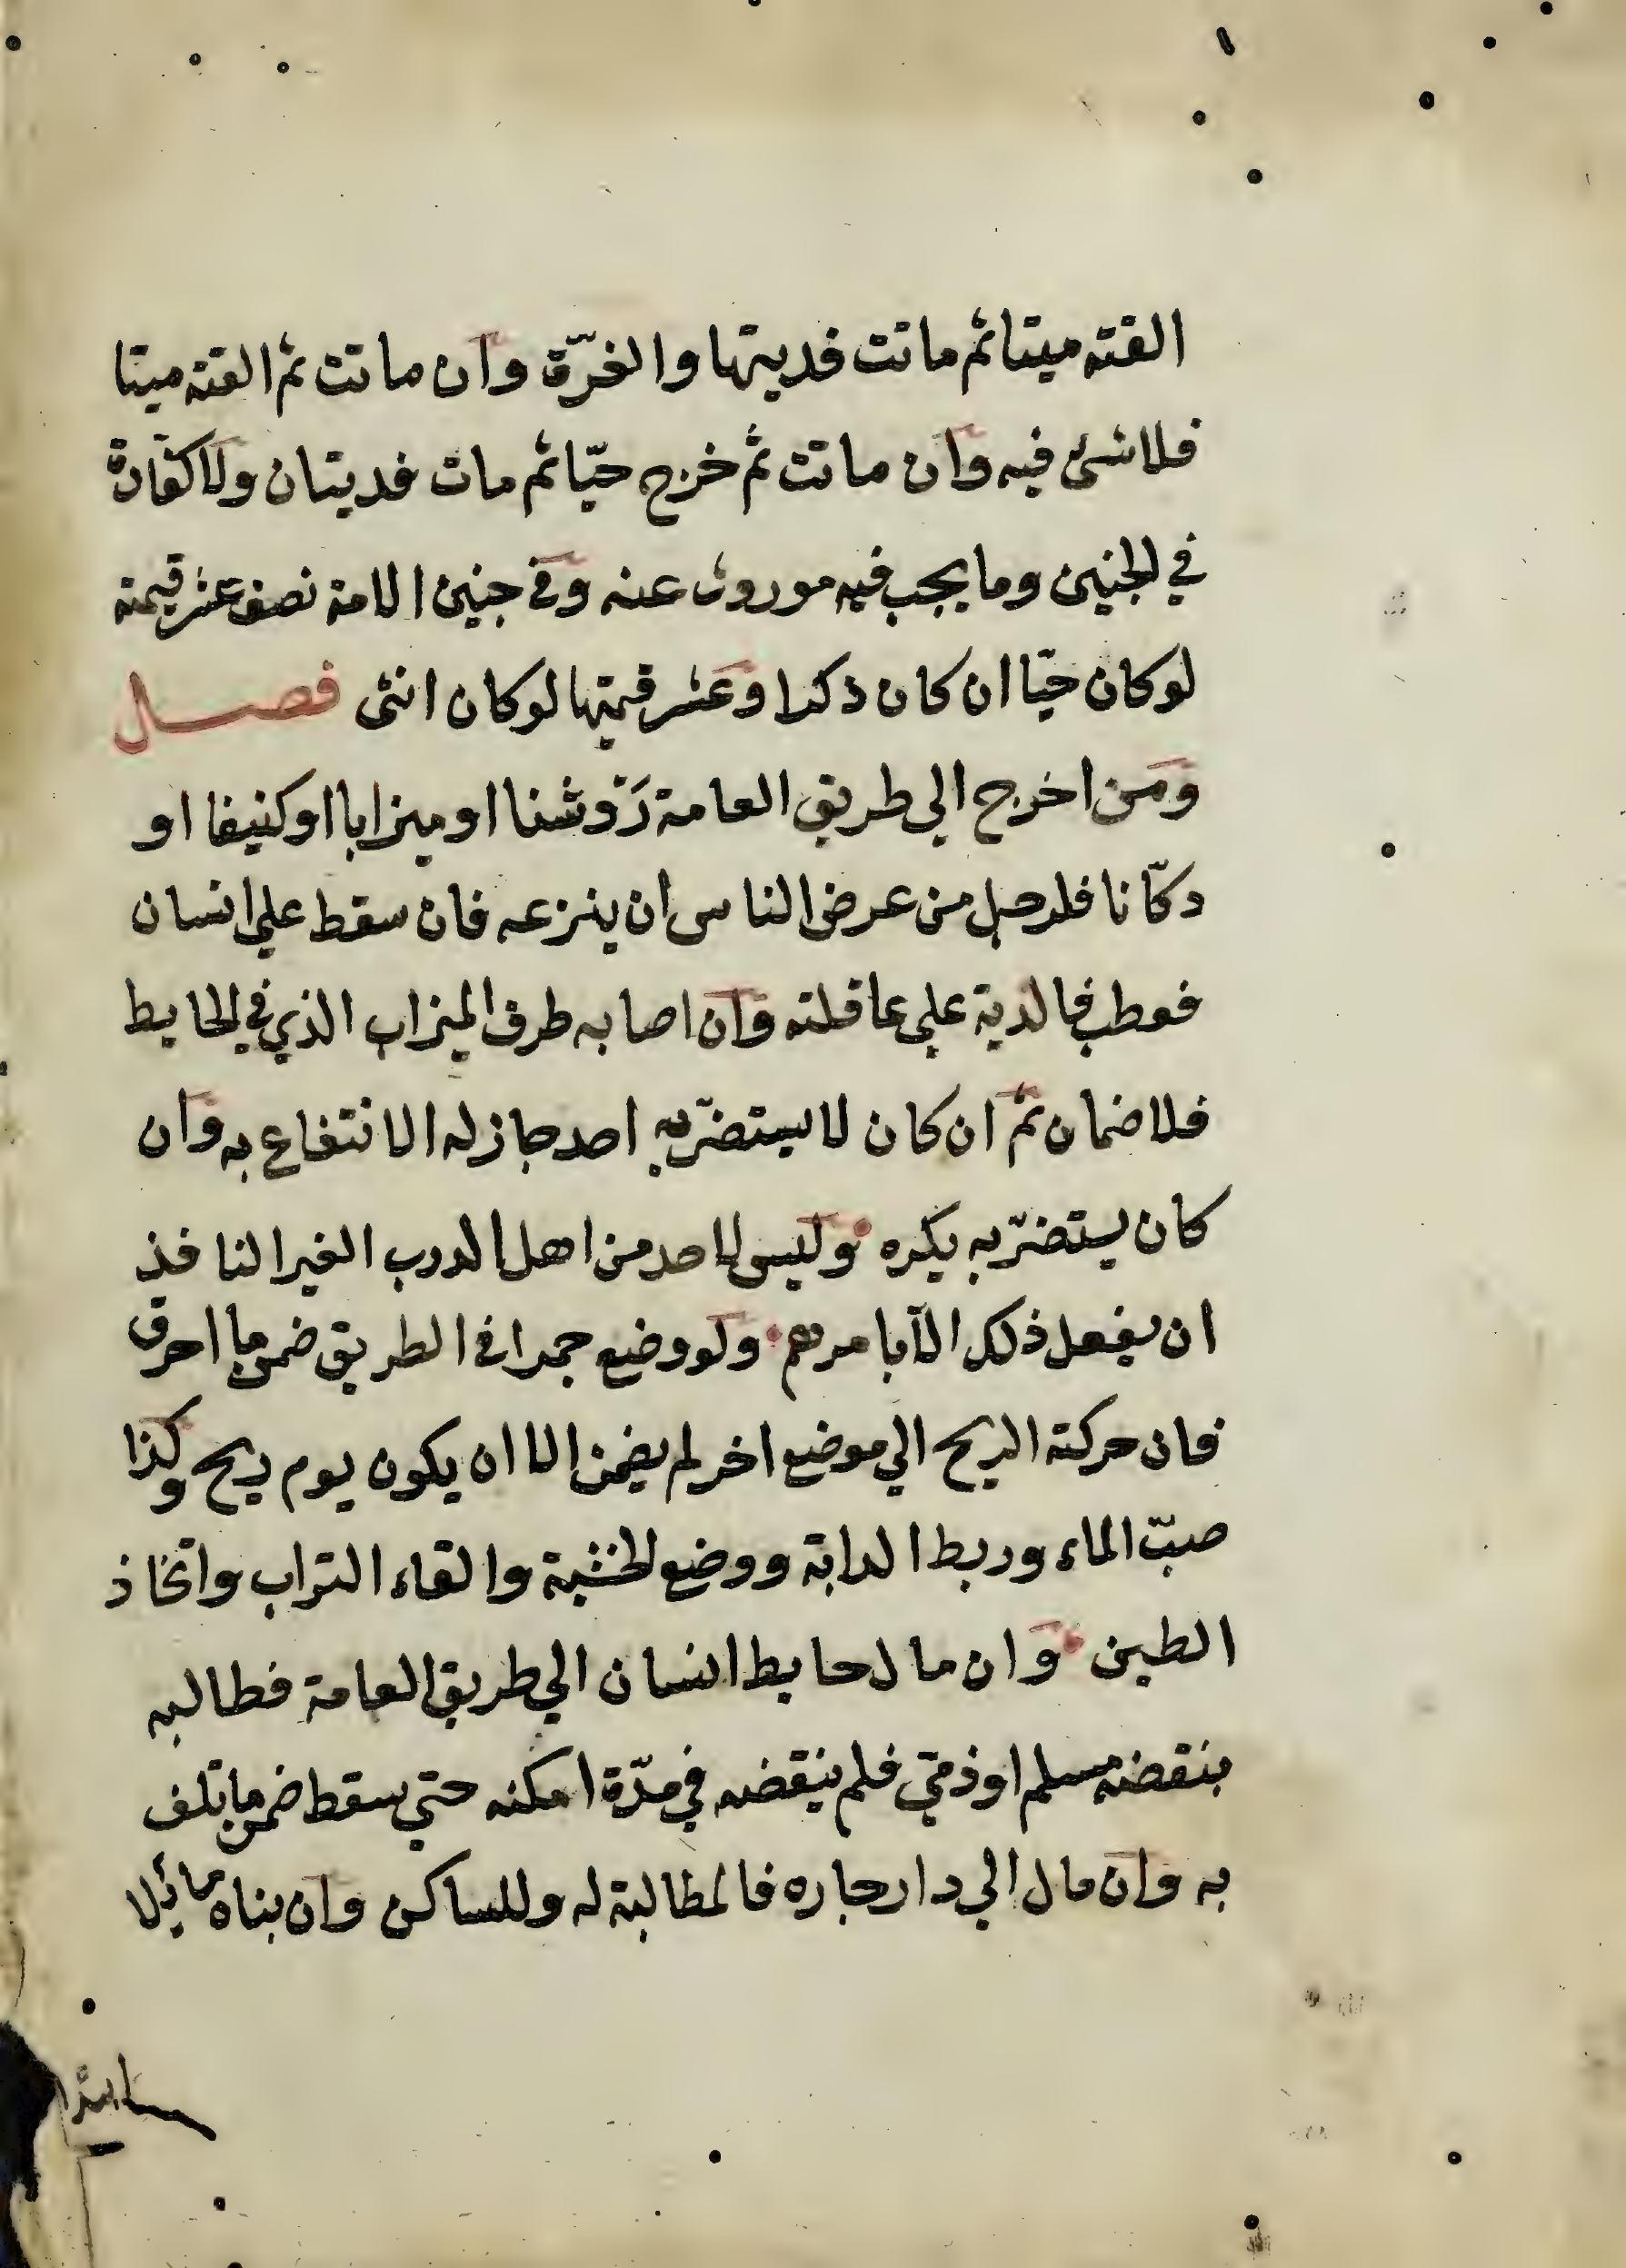 القته ميتا ثم ماتت فديتها والغرّة وان ماتت ثم القته ميتا
فلا شئ فيه وان ماتت ثم خرج حيّا ثم مات فديتان ولا كفّارة
في الجنين وما يجب فيه موروث عنه وفي جنين الامة نصف عشر قيمته
لو كان حيّا ان كان ذكرا وعشر قيمتها لو كان انثى فصل
ومن اخرج الي طريق العامة رَوشنا او ميزابا او كنيفا او
دكّانا فلرجل من عرض الناس ان ينزعه فان سقط علي انسان
فعطب فالدية علي عاقلته وان اصابه طرف الميزاب الذي في الحايط
فلا ضمان ثم ان كان لا يستضرّ به احد جاز له الانتفاع به وان
كان يستضرّ به يكره وليس لاحد من اهل الدرب الغير النافذ
ان يفعل ذلك الّا بامرهم ولو وضع جمرا في الطريق ضمن ما احرق
فان حركته الريح الي موضع اخر لم يضمن الا ان يكون يوم ريح وكذا
صبّ الماء وربط الدابة ووضع الخشبة والقاء التراب واتخاذ
الطين وان مال حايط انسان الي طريق العامة فطالبه
بنقضه مسلم او ذميّ فلم ينقضه في مدّة امكنه حتي سقط ضمن ما تلف
به وان مال الي دار جاره فالمطالبة له وللساكن وان بناه مائلا
ابتدا